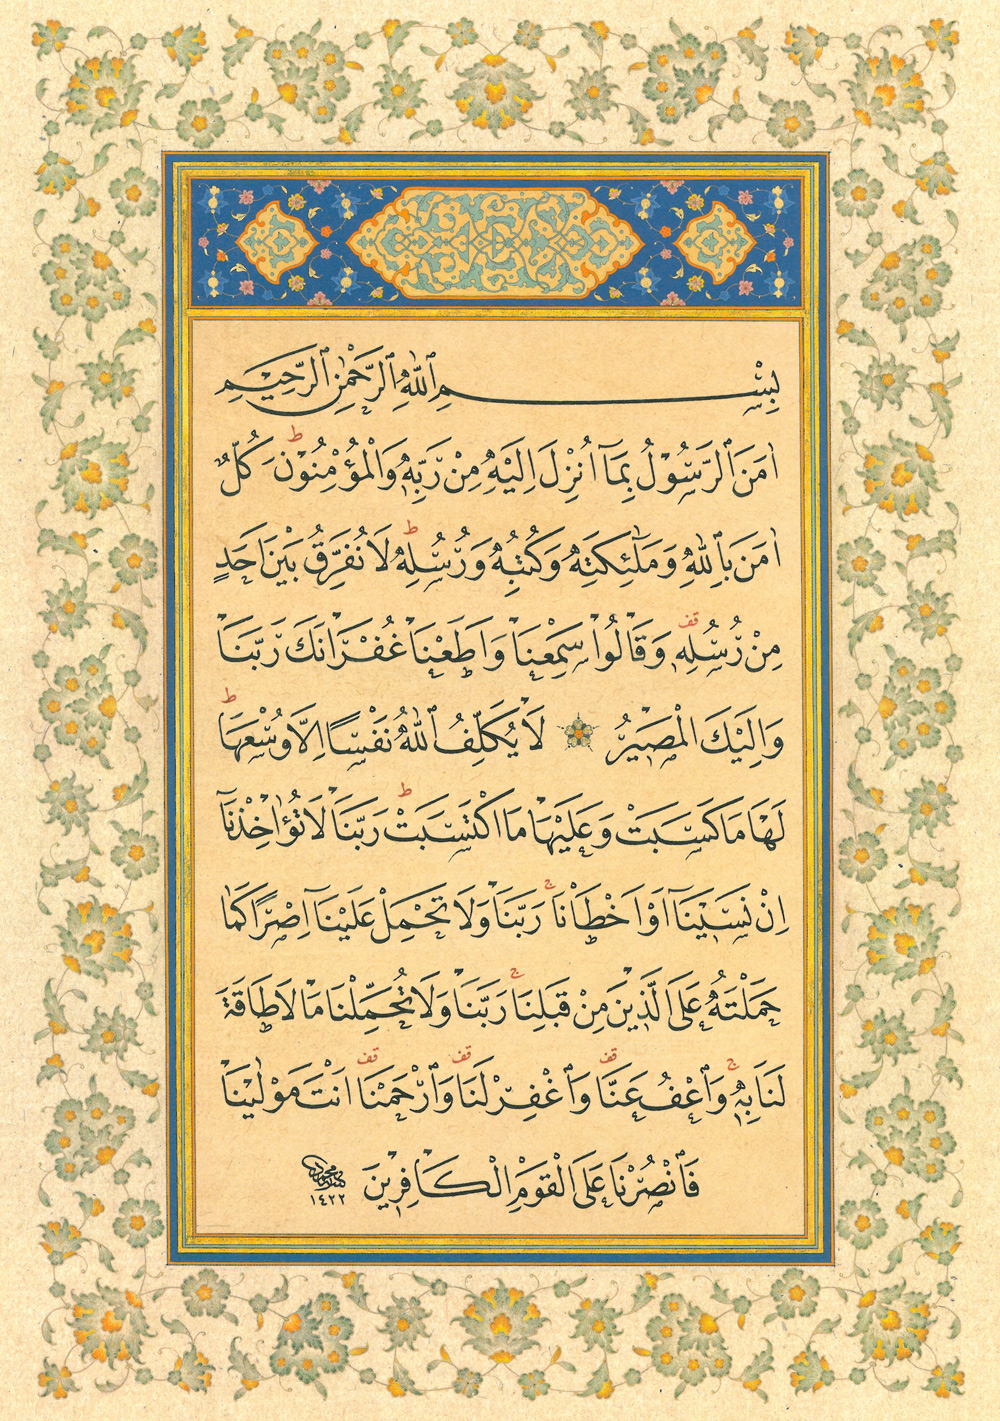 بِسْمِ ٱللّٰهِ ٱلرَّحْمٰنِ ٱلرَّحِيمِ
اٰمَنَ ٱلرَّسُولُ بِمَٓا اُنْزِلَ اِلَيْهِ مِنْ رَبِّهٖ وَالْمُؤْمِنُونَ ط كُلٌّ
اٰمَنَ بِٱللّٰهِ وَمَلٰٓئِكَتِهٖ وَكُتُبِهٖ وَرُسُلِهٖ ط لَا نُفَرِّقُ بَيْنَ اَحَدٍ
مِنْ رُسُلِهٖ قف وَقَالُوا سَمِعْنَا وَاَطَعْنَا غُفْرَانَكَ رَبَّنَا
وَاِلَيْكَ الْمَصِيرُ لَا يُكَلِّفُ ٱللّٰهُ نَفْسًا اِلَّا وُسْعَهَا ط
لَهَا مَا كَسَبَتْ وَعَلَيْهَا مَا اكْتَسَبَتْ ط رَبَّنَا لَا تُؤَاخِذْنَٓا
اِنْ نَسِينَٓا اَوْ اَخْطَاْنَا ج رَبَّنَا وَلَا تَحْمِلْ عَلَيْنَٓا اِصْرًا كَمَا
حَمَلْتَهُ عَلَى الَّذِينَ مِنْ قَبْلِنَا ج رَبَّنَا وَلَا تُحَمِّلْنَا مَا لَا طَاقَةَ
لَنَا بِهٖ ج وَٱعْفُ عَنَّا قف وَٱغْفِرْ لَنَا قف وَٱرْحَمْنَا قف اَنْتَ مَوْلٰينَا
فَٱنْصُرْنَا عَلَى الْقَوْمِ الْكَافِرِينَ
١٤٢٢